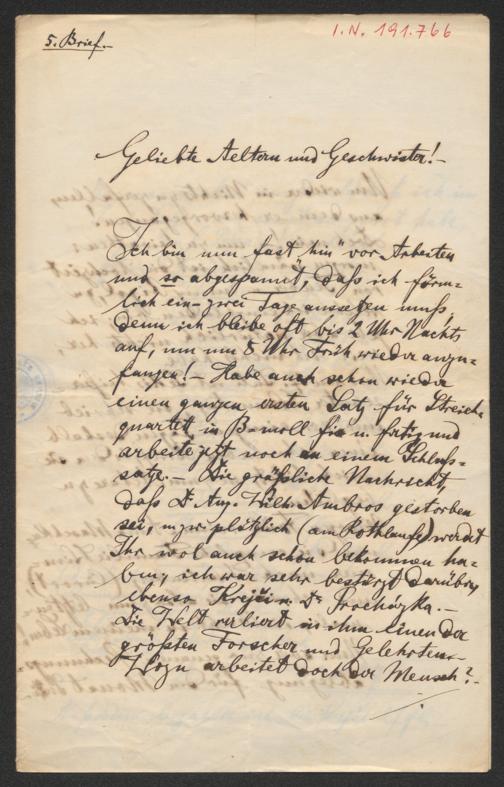 5. Brief.–
I. N. 191.766
Geliebte Aeltern und Geschwister!–
Ich bin nun fast „hin“ vor Arbeiten
und so abgespannt, daß ich förm-
lich ein-zwei Tage aussetzen muß,
denn ich bleibe oft bis 2 Uhr Nachts
auf, um um 8 Uhr Früh wieder anzu-
fangen!– Habe auch schon wieder
einen ganzen ersten Satz für Streich-
quartett in B-moll fix u. fertig und
arbeite jetzt noch an einem Schluß-
satze.– Die gräßliche Nachricht,
daß Dr. Aug. Wilh. Ambros gestorben
sei, u. zw. plötzlich (am Rothlaufe) werdet
Ihr wol auch schon bekommen ha-
ben; ich war sehr bestürzt darüber,
ebenso Krejči u. Dr. Procházka.–
Die Welt verliert in ihm Einen der
größten Forscher und Gelehrten.–
Wozu arbeitet doch der Mensch?–